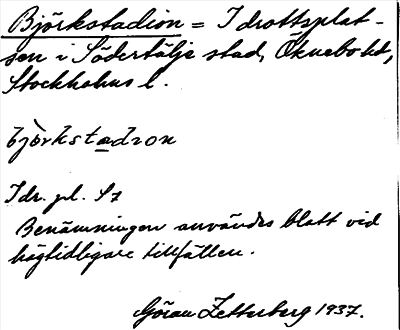 Björkstadion = Idrottsplat-
sen i Södertälje stad, Öknebo hd,
Stockholms l.
bjò̇rkstadion
Idr. pl. S 7
Benämningen användes blott vid
högtidligare tillfällen.
Göran Zetterberg 1937.